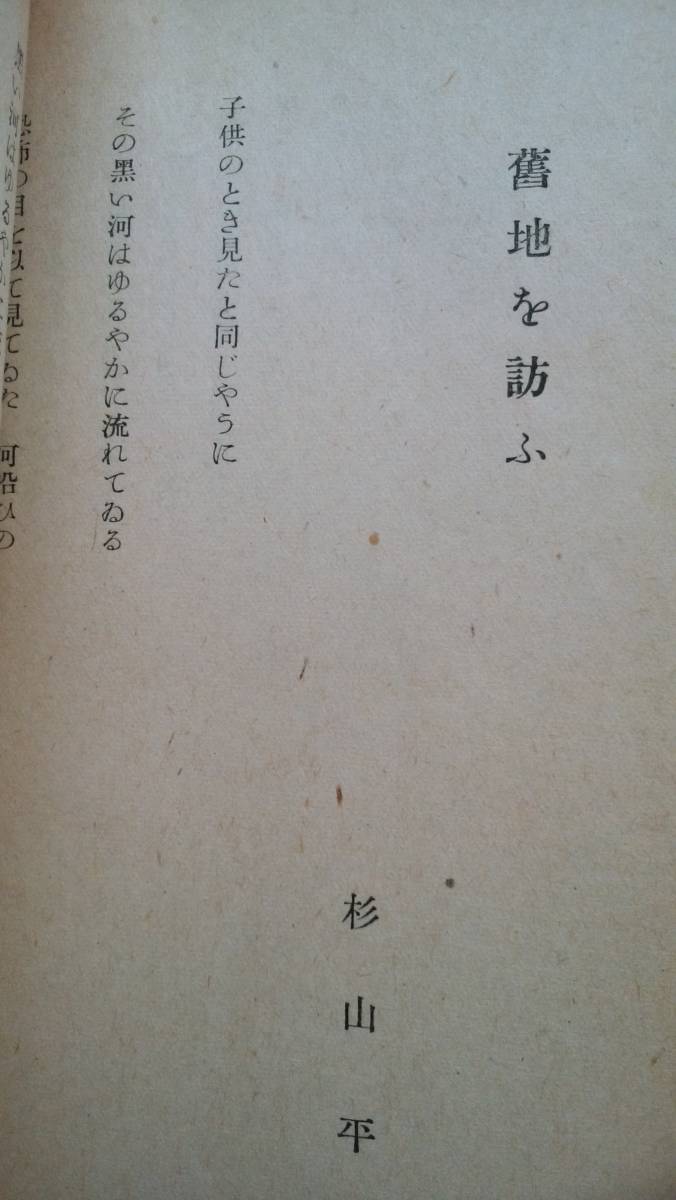 舊地を訪ふ
杉山平
子供のとき見たと同じやうに
その黑い河はゆるやかに流れてゐる
恐怖の目を以て見てゐた 河沿ひの